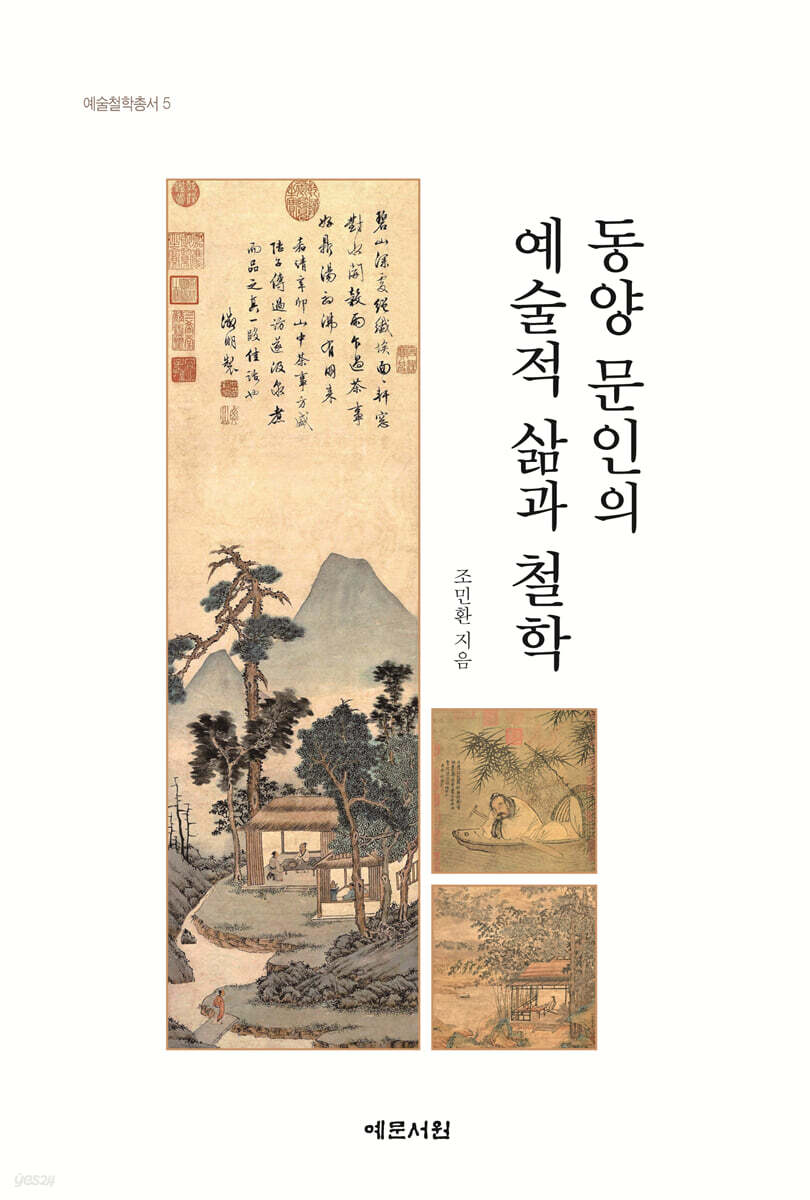 예술철학총서 5
동양 문인의
예술적 삶과 철학
조민환 지음
碧山深處絕纖埃面〻軒窓
對水開穀雨乍過茶事
好鼎湯初沸有朋来
嘉靖辛卯山中茶事方盛
陸子傳過訪遂汲泉煮
而品之真一段佳話也
徵明製
예문서원
yes24